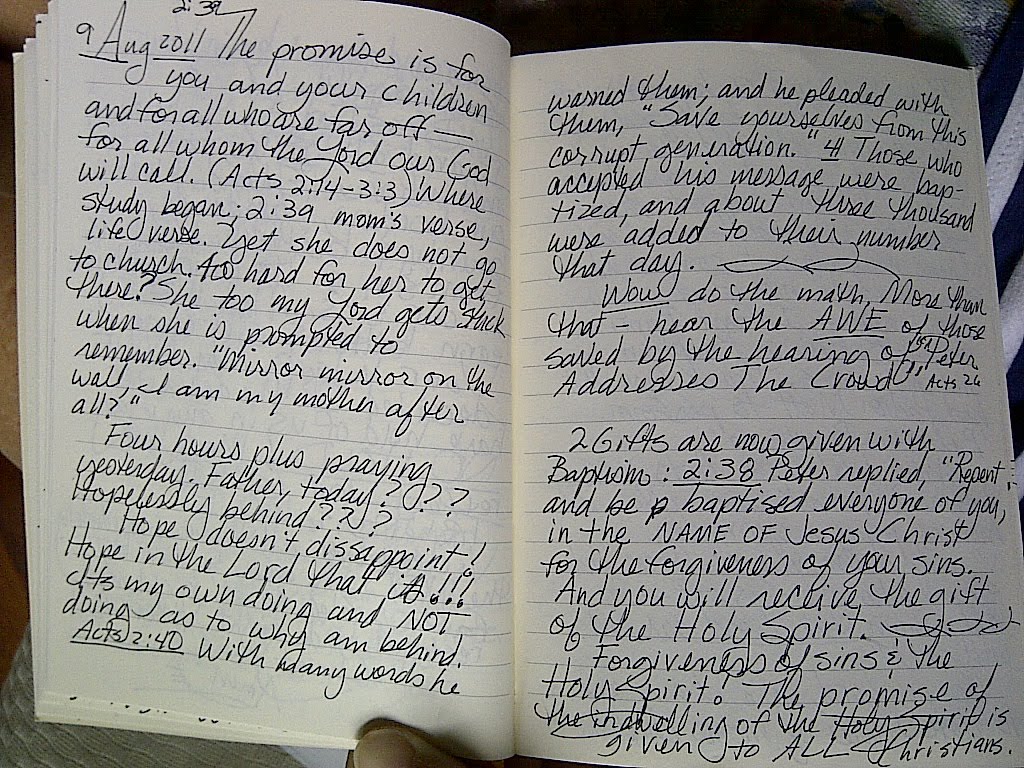 2:39
9 Aug 2011 The promise is for
you and your children
and for all who are far off —
for all whom the Lord our God
will call. (Acts 2:14-3:3) Where
study began; 2:39 mom's verse,
life verse. Yet she does not go
to church. Too hard for her to get
there? She too my Lord gets stuck
when she is prompted to
remember. "Mirror mirror on the
wall, I am my mother after
all?"
Four hours plus praying
yesterday. Father, today? ? ?
Hopelessly behind? ? ?
Hope doesn't dissappoint!
Hope in the Lord that is!!!
Its my own doing and NOT
doing as to why am behind.
Acts 2:40 With many words he
warned them; and he pleaded with
them, "Save yourselves from this
corrupt generation." 41 Those who
accepted his message were bap-
tized, and about three thousand
were added to their number
that day.
Wow do the math. More than
that - hear the AWE of those
saved by the hearing of "Peter
Addresses The Crowd" Acts 2
2 Gifts are now given with
Baptism: 2:38 Peter replied, "Repent
and be baptised everyone of you,
in the NAME OF Jesus Christ
for the forgiveness of your sins.
And you will receive the gift
of the Holy Spirit.
Forgiveness of sins & the
Holy Spirit! The promise of
the indwelling of the Holy Spirit is
given to ALL Christians.